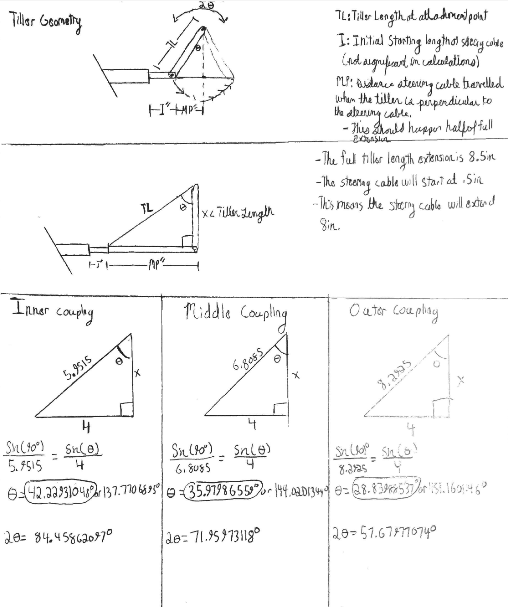 Tiller Geometry
2θ
TL
θ
I"
MP"
TL: Tiller Length at attachment point
I: Initial starting length of steering cable
(not significant in calculations)
MP: Distance steering cable travelled
when the tiller is perpendicular to
the steering cable.
- This should happen half of full
extension
TL
θ
x < Tiller Length
I"
MP"
- The full tiller length extension is 8.5in
- The steering cable will start at .5in
- This means the steering cable will extend
8in.
Inner coupling
5.9515
θ
x
4
Sin(90°) = Sin(θ)
5.9515 4
θ = 42.22931048° or 137.7706895°
2θ = 84.45862097°
Middle Coupling
6.8085
θ
x
4
Sin(90°) = Sin(θ)
6.8085 4
θ = 35.97986559° or 144.0201344°
2θ = 71.95973118°
Outer Coupling
8.2925
θ
x
4
Sin(90°) = Sin(θ)
8.2925 4
θ = 28.83988537° or
2θ = 57.67977074°